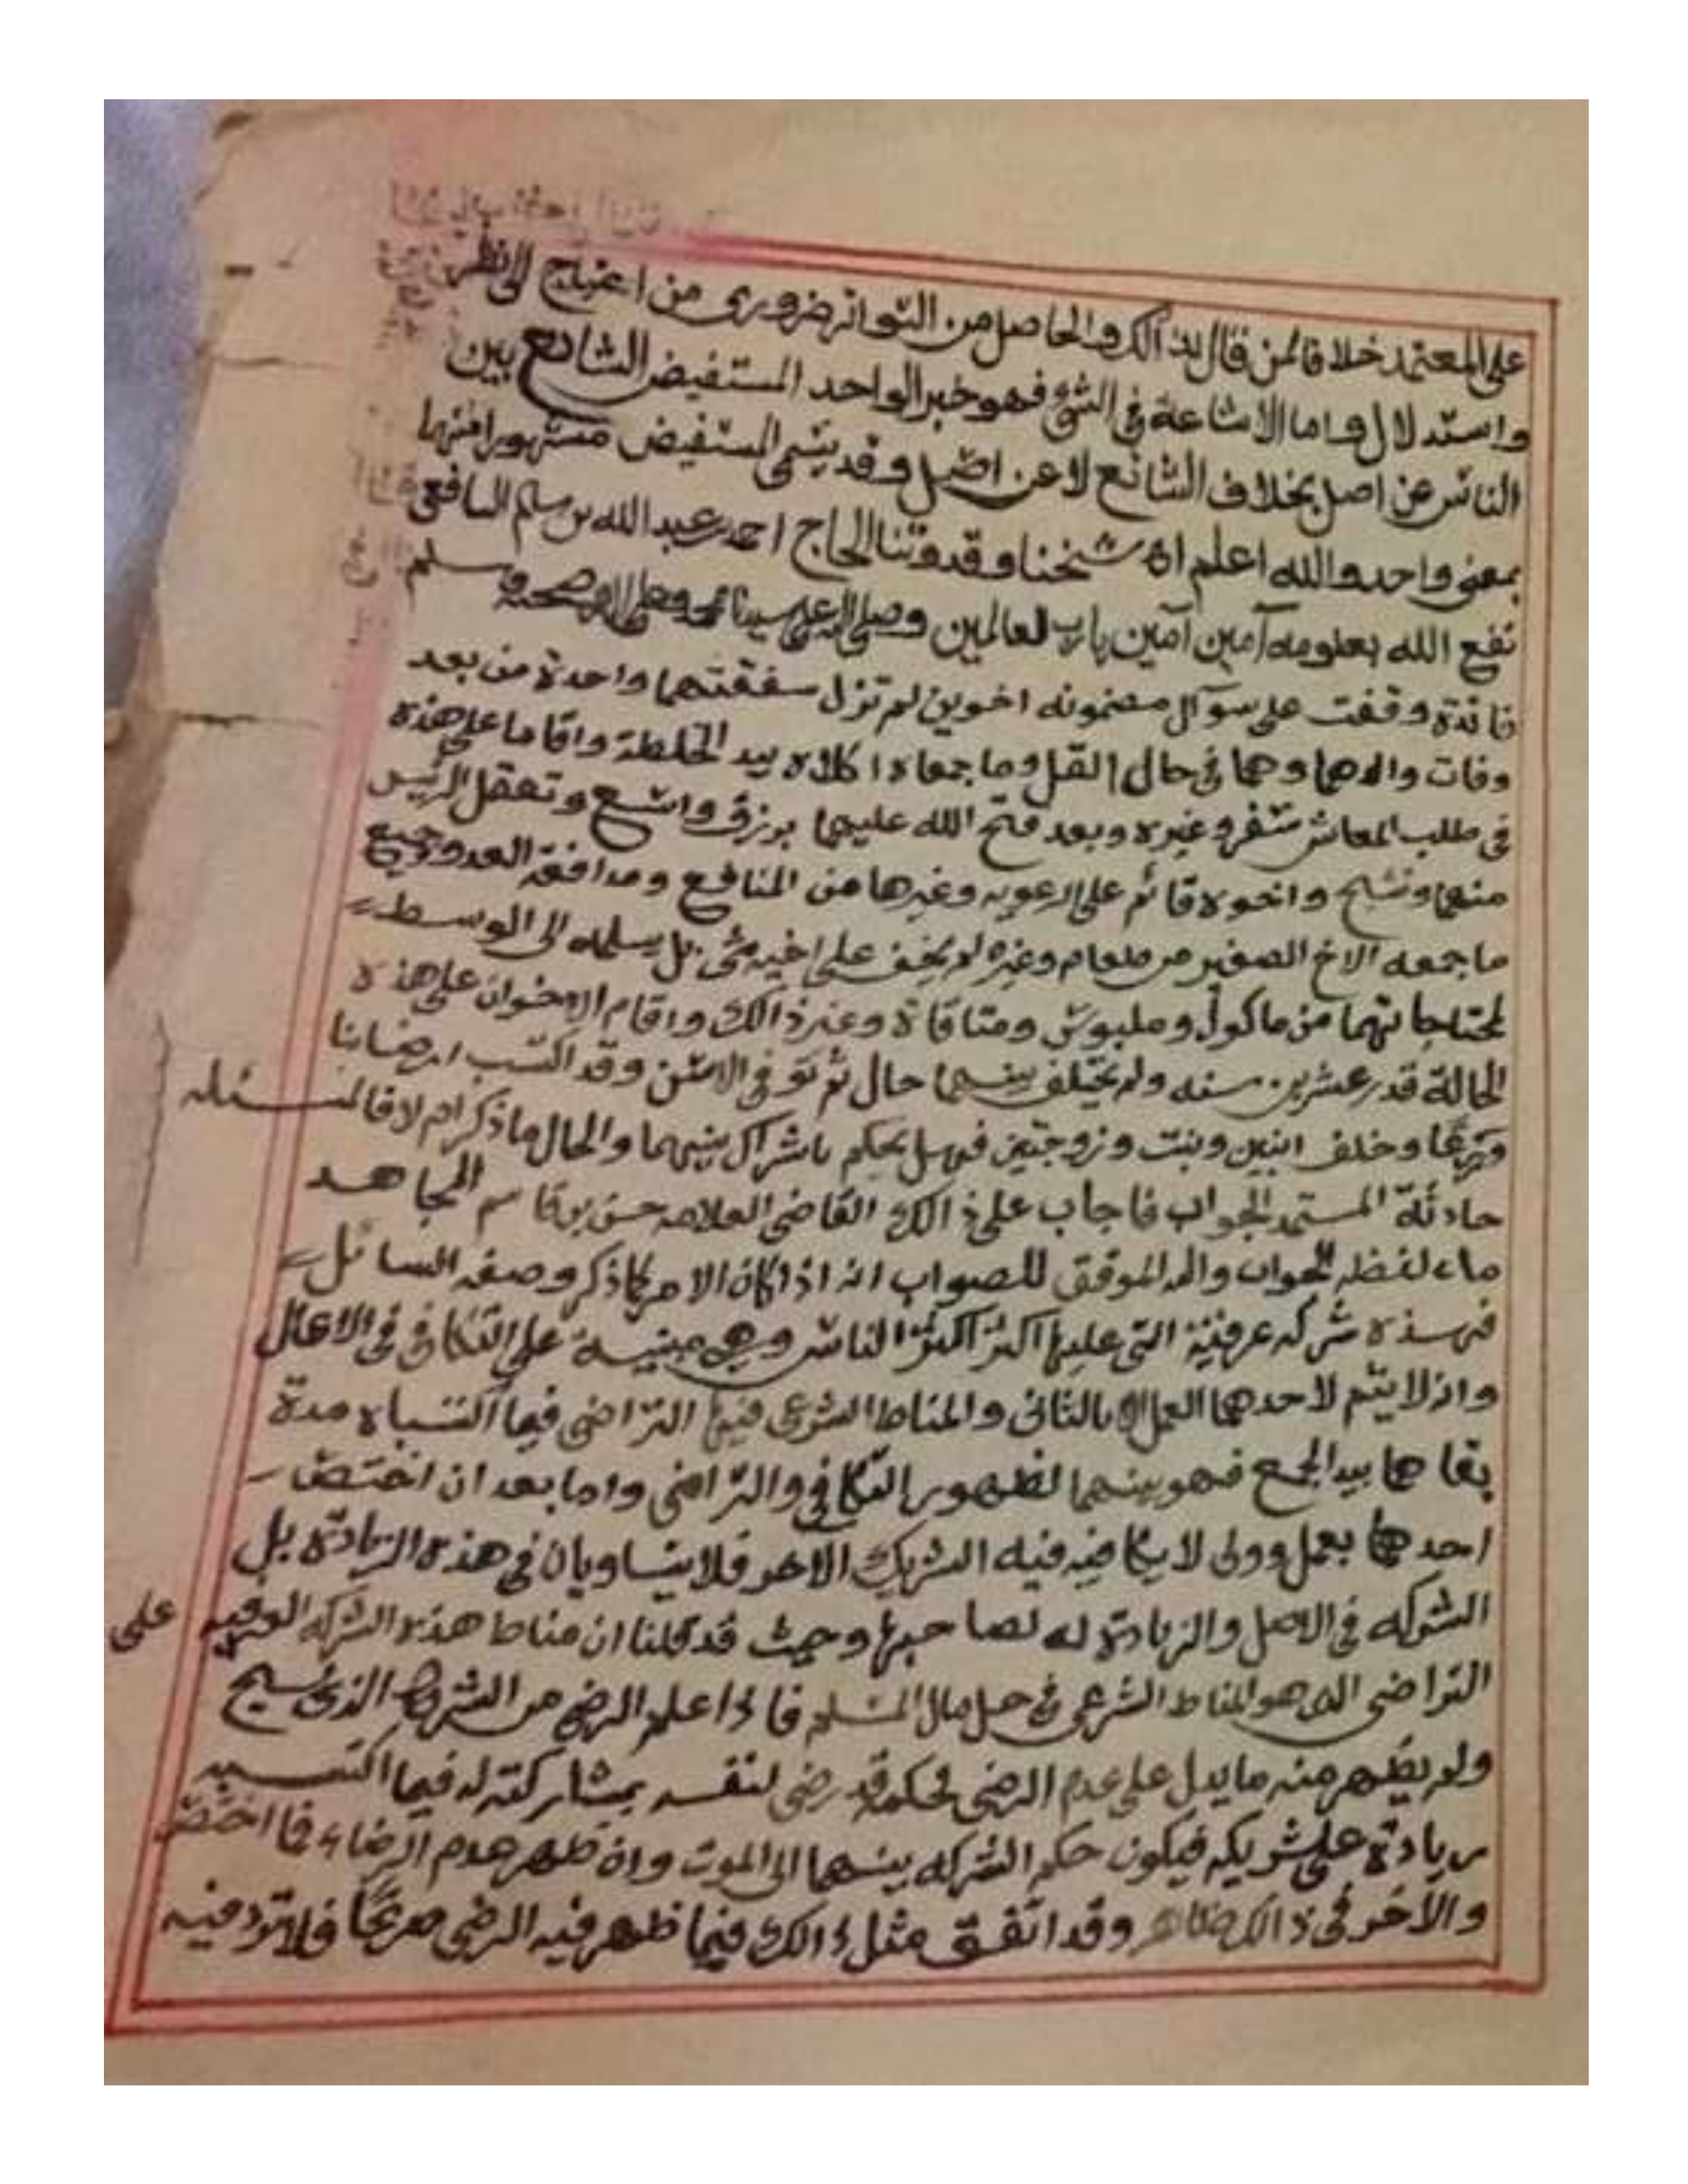 على المعتمد خلافا لمن قال بذالك والحاصل من التواتر ضروري من احتياج الى نظر
واستدلال واما الاشاعة في الشي فهو خبر الواحد المستفيض الشائع بين
الناس عن اصل بخلاف الشائع لا عن اصل وقد يسمى المستفيض مشهورا فهما
بمعنى واحد والله اعلم اه شيخنا وقدوتنا الحاج احمد بن عبد الله بن سلم
نفع الله بعلومه آمين آمين يارب العالمين وصلى الله على سيدنا محمد وعلى اله وصحبه وسلم
فائدة وقفت على سوآل مضمونه اخوين لم تزل سفقتهما واحدة من بعد
وفات والدهما وهما في حال القل وما جمعاه اكلاه بيد الخلطة واقاما على هذه
في طلب المعاش سفر وغيره وبعد فتح الله عليهما برزق واسع وتعقل الرئيس
منهما وشيخ واخوه قائم على الرعويه وغيرها من المنافع ومدافعة العدو وجميع
ما جمعه الاخ الصغير من طعام وغيره لم يخف على اخيه شي بل يسلمه الى الوسط
لمحتاجاتهما من ماكول وملبوس ومناقاة وغير ذالك واقام الاخوان على هذه
الحالة قدر عشرين سنه ولم يختلف بينهما حال ثم توفي الاسن وقد اكتسب ارضا بنا
وخلف ابنين وبنت وزوجتين فهل يحكم باشراك بينهما والحال ما ذكر ام لا فالمسئله
حادثة المستمد الجواب فاجاب على ذالك القاضي العلامه حسن بن قاسم المجاهد
ما لفظه الجواب والله الموفق للصواب انه اذا كان الامر كما ذكر وصفه السائل
فهذه شركه عرفية التي عليها اكثر اكثر الناس وهي مبنية على التكافي في الاعمال
واذ لا يتم لاحدهما العمل الا بالثاني والمناط الشرعي فيها التراضي فيما اكتسباه مدة
بقاهما بيد الجمع فهو بينهما لظهور التكافي والتراضي واما بعد ان اختص
احدهما بعمل وولى لا يكافيه فيه الشريك الاخر فلا يتساويان في هذه الزيادة بل
الشركه في الاصل والزيادة له لصاحبها وحيث قد قلنا ان مناط هذه الشركه العرفيه على
التراضي الذي هو المناط الشرعي في حل مال المسلم فاذا علم الرضى من الشريك الذي
ولم يظهر منه ما يدل على عدم الرضى فحكمه قد رضي لنفسه بمشاركته له فيما اكتسبه
زيادة على شريكه فيكون حكم الشركه بينهما الى الموت وان ظهر عدم الرضاء فما اختص
والاخر في ذالك وقد اتفق مثل ذالك فيما ظهر فيه الرضى صريحا فلا تردد فيه